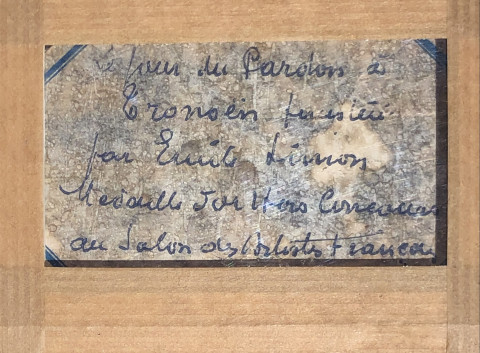 jour du Pardon à
Tronoën Finistère
par Emile Simon
Médaille d'or Hors Concours
au Salon des Artistes Français